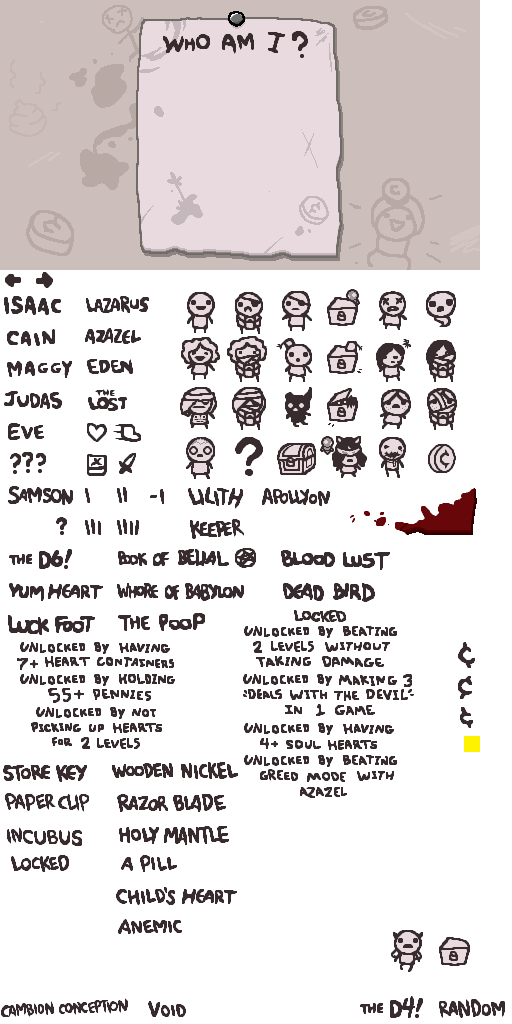 WHO AM I?
ISAAC LAZARUS
CAIN AZAZEL
MAGGY EDEN
JUDAS THE LOST
EVE
???
SAMSON I II -I LILITH APOLLYON
? III IIII KEEPER
THE D6! BOOK OF BELIAL BLOOD LUST
YUM HEART WHORE OF BABYLON DEAD BIRD
LUCK FOOT THE POOP
LOCKED
UNLOCKED BY HAVING
7+ HEART CONTAINERS
UNLOCKED BY HOLDING
55+ PENNIES
UNLOCKED BY NOT
PICKING UP HEARTS
FOR 2 LEVELS
UNLOCKED BY BEATING
2 LEVELS WITHOUT
TAKING DAMAGE
UNLOCKED BY MAKING 3
"DEALS WITH THE DEVIL"
IN 1 GAME
UNLOCKED BY HAVING
4+ SOUL HEARTS
UNLOCKED BY BEATING
GREED MODE WITH
AZAZEL
¢
¢
¢
STORE KEY WOODEN NICKEL
PAPER CLIP RAZOR BLADE
INCUBUS HOLY MANTLE
LOCKED A PILL
CHILD'S HEART
ANEMIC
CAMBION CONCEPTION VOID THE D4! RANDOM